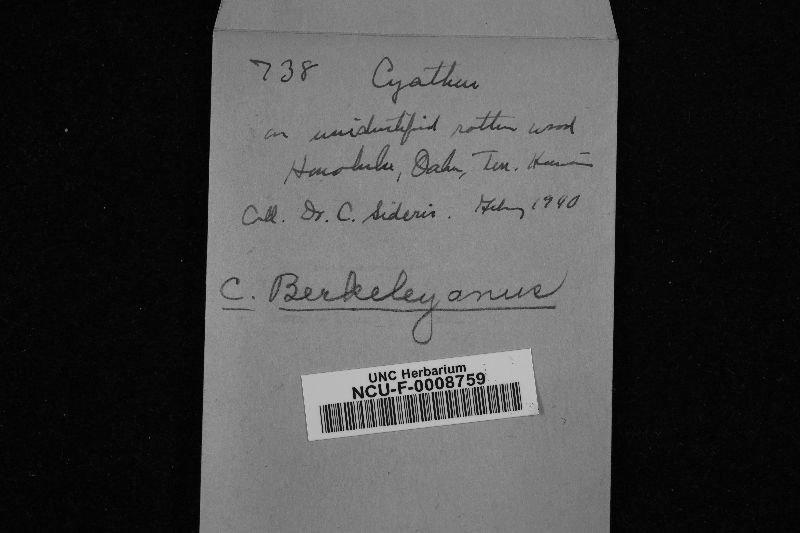 738 Cyathus
on unidentified rotten wood
Honolulu, Oahu, Terr. Hawaii
Coll. Dr. C. Sideris. Feby 1940
C. Berkeleyanus
UNC Herbarium
NCU-F-0008759